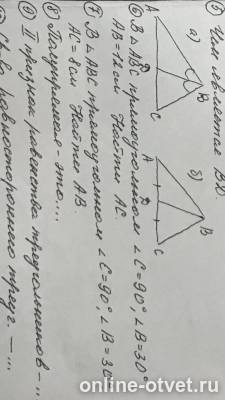 ⑤ Чем является BD.
а)
б)
A
B
C
D
A
B
C
D
⑥ В △ABC прямоугольном ∠C=90°, ∠B=30°
AB=12см Найти AC.
⑦ В △ABC прямоугольном ∠C=90°, ∠B=30°
AC=8см Найти AB.
⑧ Полупрямая - это...
⑨ II признак равенства треугольников - ...
Св-во равностороннего треуг. - ...
online-otvet.ru